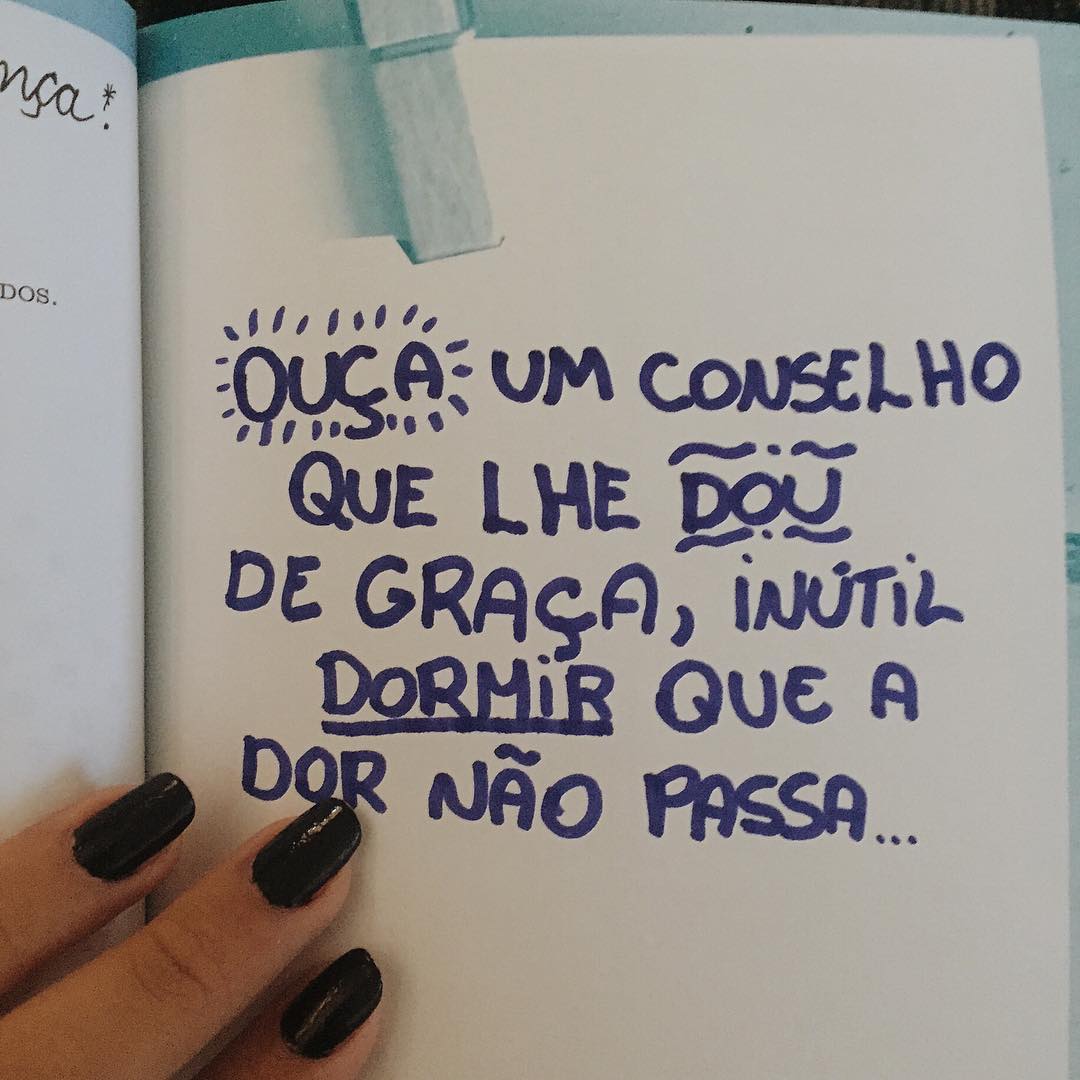 nça!*
DOS.
OUÇA UM CONSELHO
QUE LHE DOU
DE GRAÇA, INÚTIL
DORMIR QUE A
DOR NÃO PASSA...